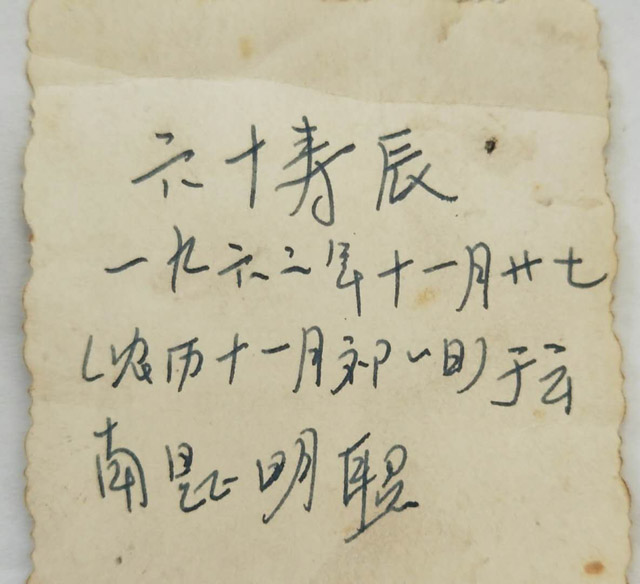 六十寿辰
一九六二年十一月廿七
(农历十一月初一日)于云
南昆明